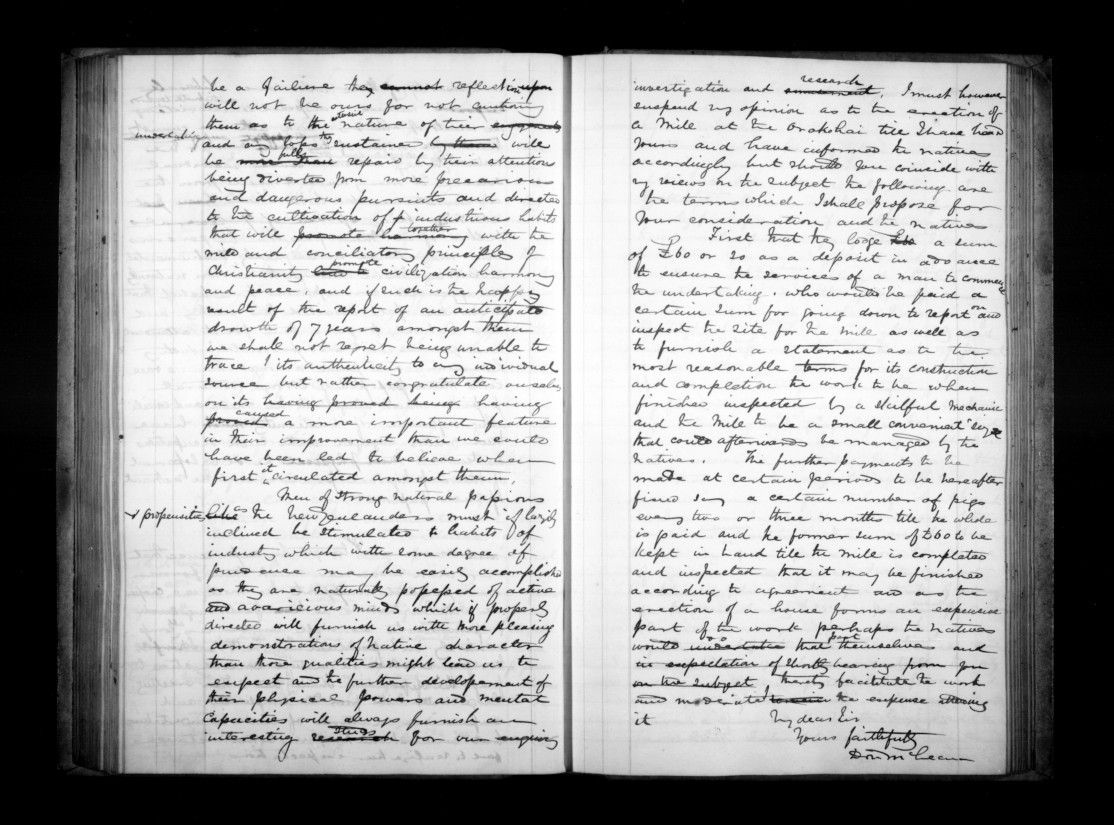 be a failure they cannot reflection upon
will not be ours for not cautioning
them as to the nature of their
undertaking
and any loss they sustained by them will
be more than fully repaid by their attention
being diverted from more precarious
and dangerous pursuits and directed
to the cultivation of industrious habits
that will promote harmony together with the
mild and conciliatory principles of
Christianity lead to promote civilization harmony
and peace. and if such is the happy
result of the report of an anticipated
drowth of 7 years amongst them
we shall not regret being unable to
trace its authenticity to any individual
source but rather congratulate ourselves
on its having proved being having
proved caused a more important feature
in their improvement than we could
have been led to believe when
first it circulated amongst them.
Men of strong natural passions
propensities like the New Zealanders must if largily
inclined be stimulated to habits of
industry which with some degree of
prudence may be easily accomplished
as they are naturally possessed of active
and avaricious minds which if properly
directed will furnish us with more pleasing
demonstrations of native character
than those qualities might lead us to
expect and the further developement of
their physical powers and mental
capacities will always furnish an
interesting research study for our enquiry
investigation and amusement research. I must however
suspend my opinion as to the erection of
a Mill at the Orakhai till I have heard
yours and have informed the natives
accordingly but should you coincide with
my views on the subject the following are
the terms which I shall propose for
your consideration and the natives
First that they lodge £60 a sum
of £60 or so as a deposit in advance
to ensure the services of a man to commence
the undertaking. who would be paid a
certain sum for going down to report on and
inspect the site for the mill as well as
to furnish a statement as to the
most reasonable terms for its construction
and completion the work to be when
finished inspected by a skilful Mechanic
and the Mill to be a small convenient size
that could afterwards be managed by the
natives. The further payments to be
made at certain periods to be hereafter
fixed say a certain number of pigs
every two or three months till the whole
is paid and the former sum of £60 to be
kept in hand till the mill is completed
and inspected that it may be finished
according to agreement and as the
erection of a house forms an expensive
part of the work perhaps the natives
would undertake do that part themselves and
in expectation of shortly hearing from you
on the subject thereby facitate the work
and moderate the expense
it My dear Sir
Yours faithfully
Don McLean